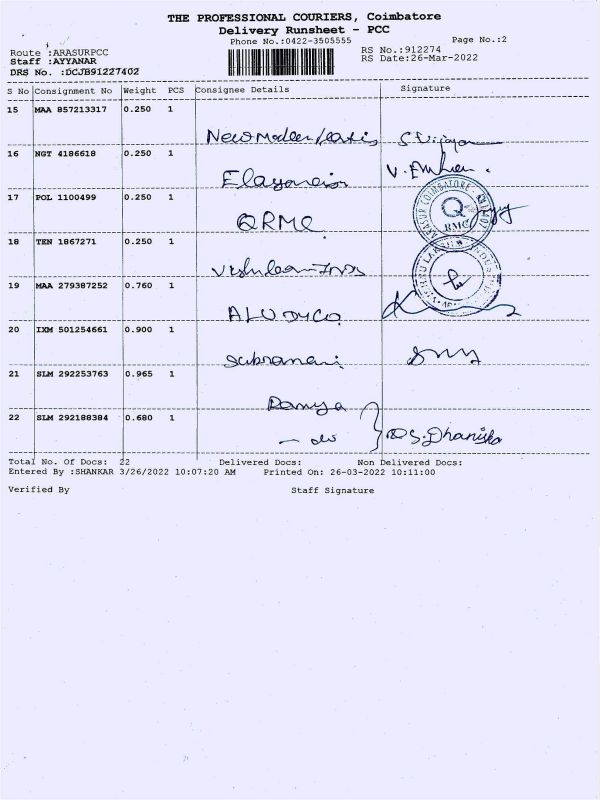 THE PROFESSIONAL COURIERS, Coimbatore
Delivery Runsheet - PCC
Phone No.:0422-3505555 Page No.:2
Route :ARASURPCC RS No.:912274
Staff :AYYANAR RS Date:26-Mar-2022
DRS No. :DCJB91227402
S No Consignment No Weight PCS Consignee Details Signature
15 MAA 857213317 0.250 1
16 NGT 4186618 0.250 1
17 POL 1100499 0.250 1 QRMC
18 TEN 1867271 0.250 1
19 MAA 279387252 0.760 1 ALU DYCO
20 IXM 501254661 0.900 1
21 SLM 292253763 0.965 1 Danya
22 SLM 292188384 0.680 1 - do S. Dhanisha
Total No. Of Docs: 22 Delivered Docs: Non Delivered Docs:
Entered By :SHANKAR 3/26/2022 10:07:20 AM Printed On: 26-03-2022 10:11:00
Verified By Staff Signature